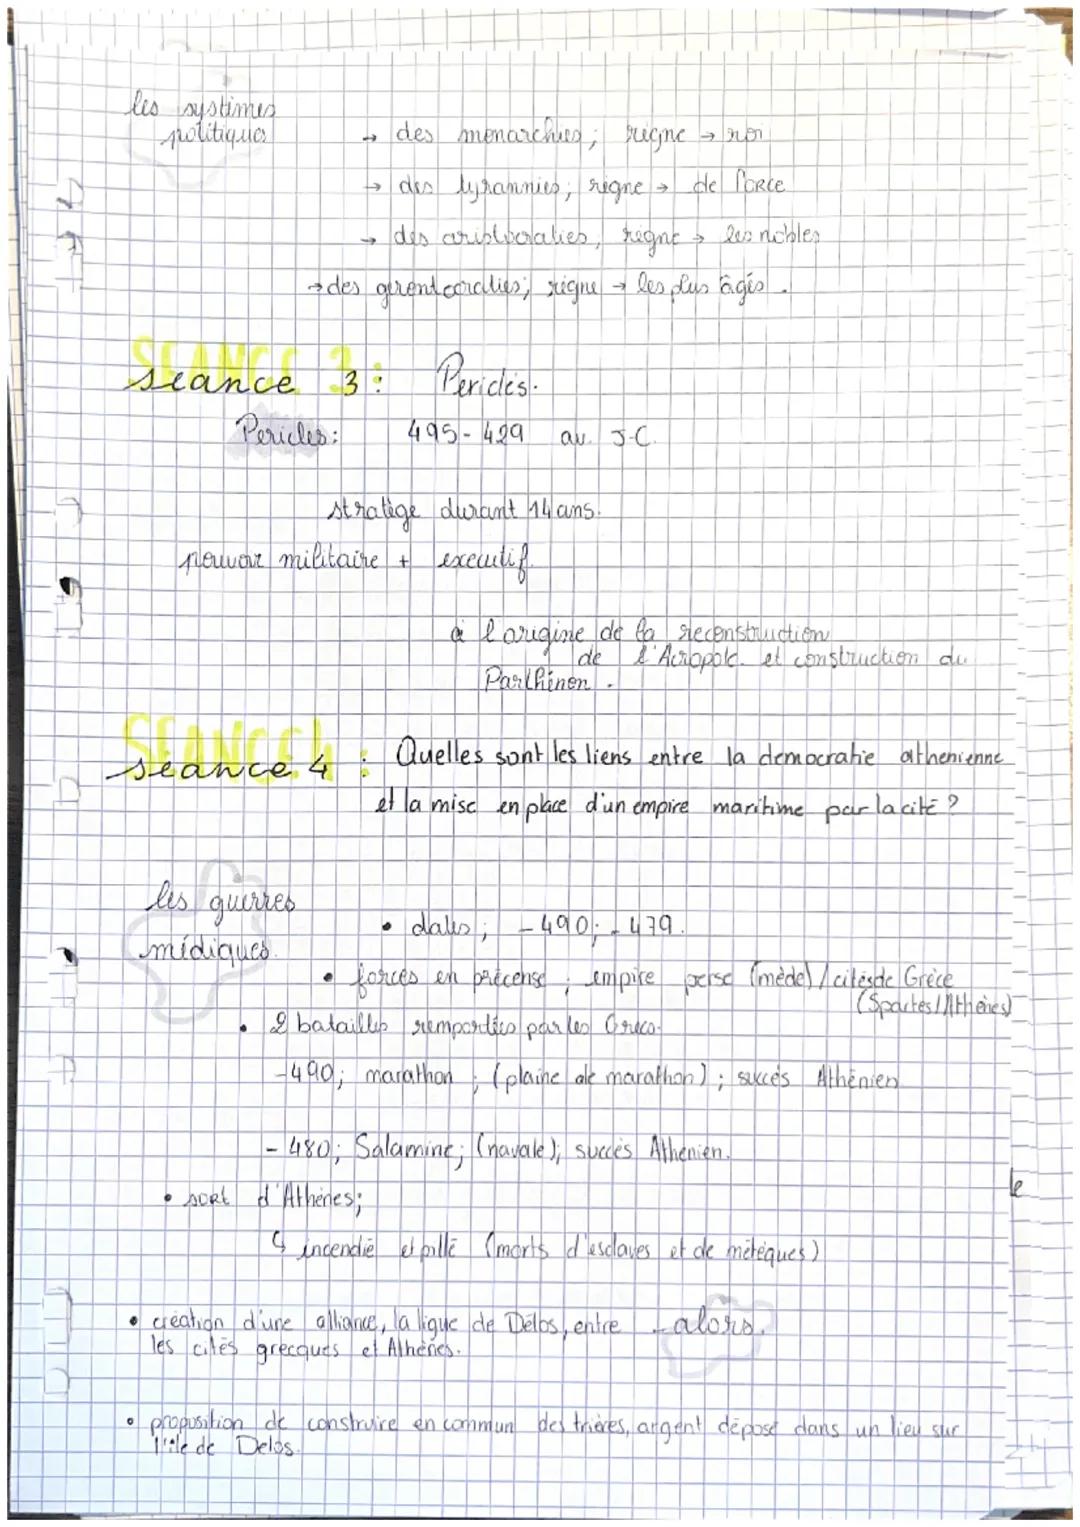 les systèmes
politiques
→ des monarchies; règne → roi
→ des tyrannies; règne → de force
→ des aristocraties; règne → les nobles
→ des gérontocraties; règne → les plus âgés.
SEANCE 3 :
séance 3 : Périclès.
Péricles: 495-429 av. J-C.
stratège durant 14 ans.
pouvoir militaire + executif.
à l'origine de la reconstruction
de l'Acropole et construction du
Parthénon.
SEANCE 4
séance 4 : Quelles sont les liens entre la democratie athenienne
et la mise en place d'un empire maritime par la cité ?
les guerres
médiques.
• dates; -490; -479.
• forces en précense; empire perse (mède) / cités de Grèce
(Spartes/Athènes)
• 2 batailles remportées par les Grecs.
-490; marathon; (plaine de marathon); succès Athénien
- 480; Salamine; (navale); succès Athenien.
le
• sort d'Athènes;
↳ incendié et pillé (morts d'esclaves et de métèques)
• création d'une alliance, la ligue de Délos, entre - alors.
les cités grecques et Athènes.
• proposition de construire en commun des trières, argent déposé dans un lieu sur
l'île de Delos.